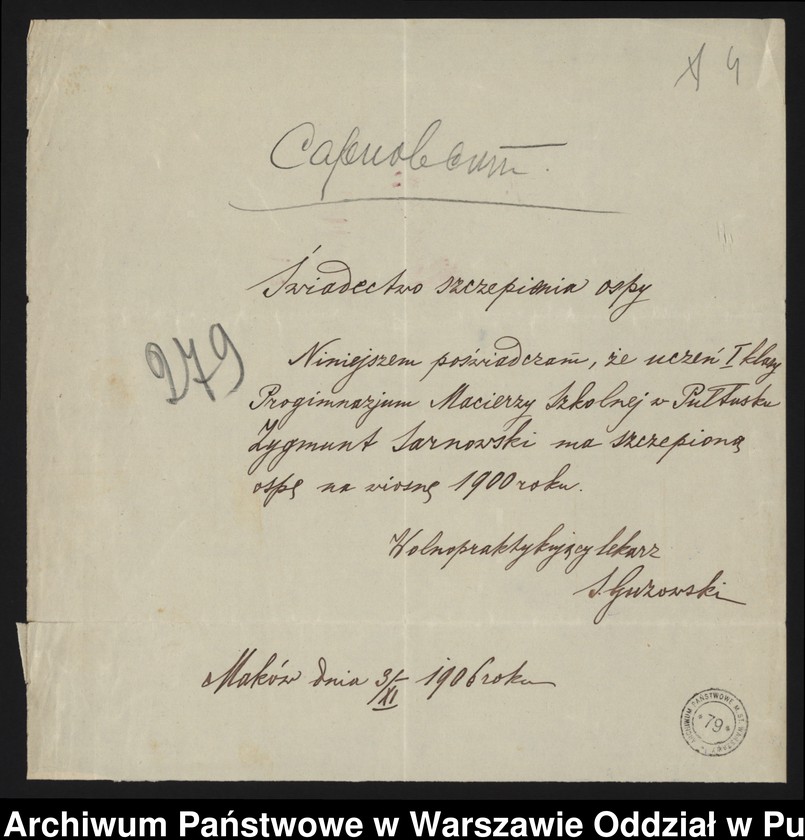 4
Сарновскiй.
Świadectwo szczepienia ospy
279
Niniejszem poświadczam, że uczeń I klasy
Progimnazjum Macierzy Szkolnej w Pułtusku
Zygmunt Sarnowski ma szczepioną
ospę na wiosnę 1900 roku.
Wolnopraktykujący lekarz
S. Guzowski
Maków dnia 3/XI 1906 roku
ARCHIWUM PAŃSTWOWE M. ST. WARSZAWY
* 79 *
Archiwum Państwowe w Warszawie Oddział w Pu